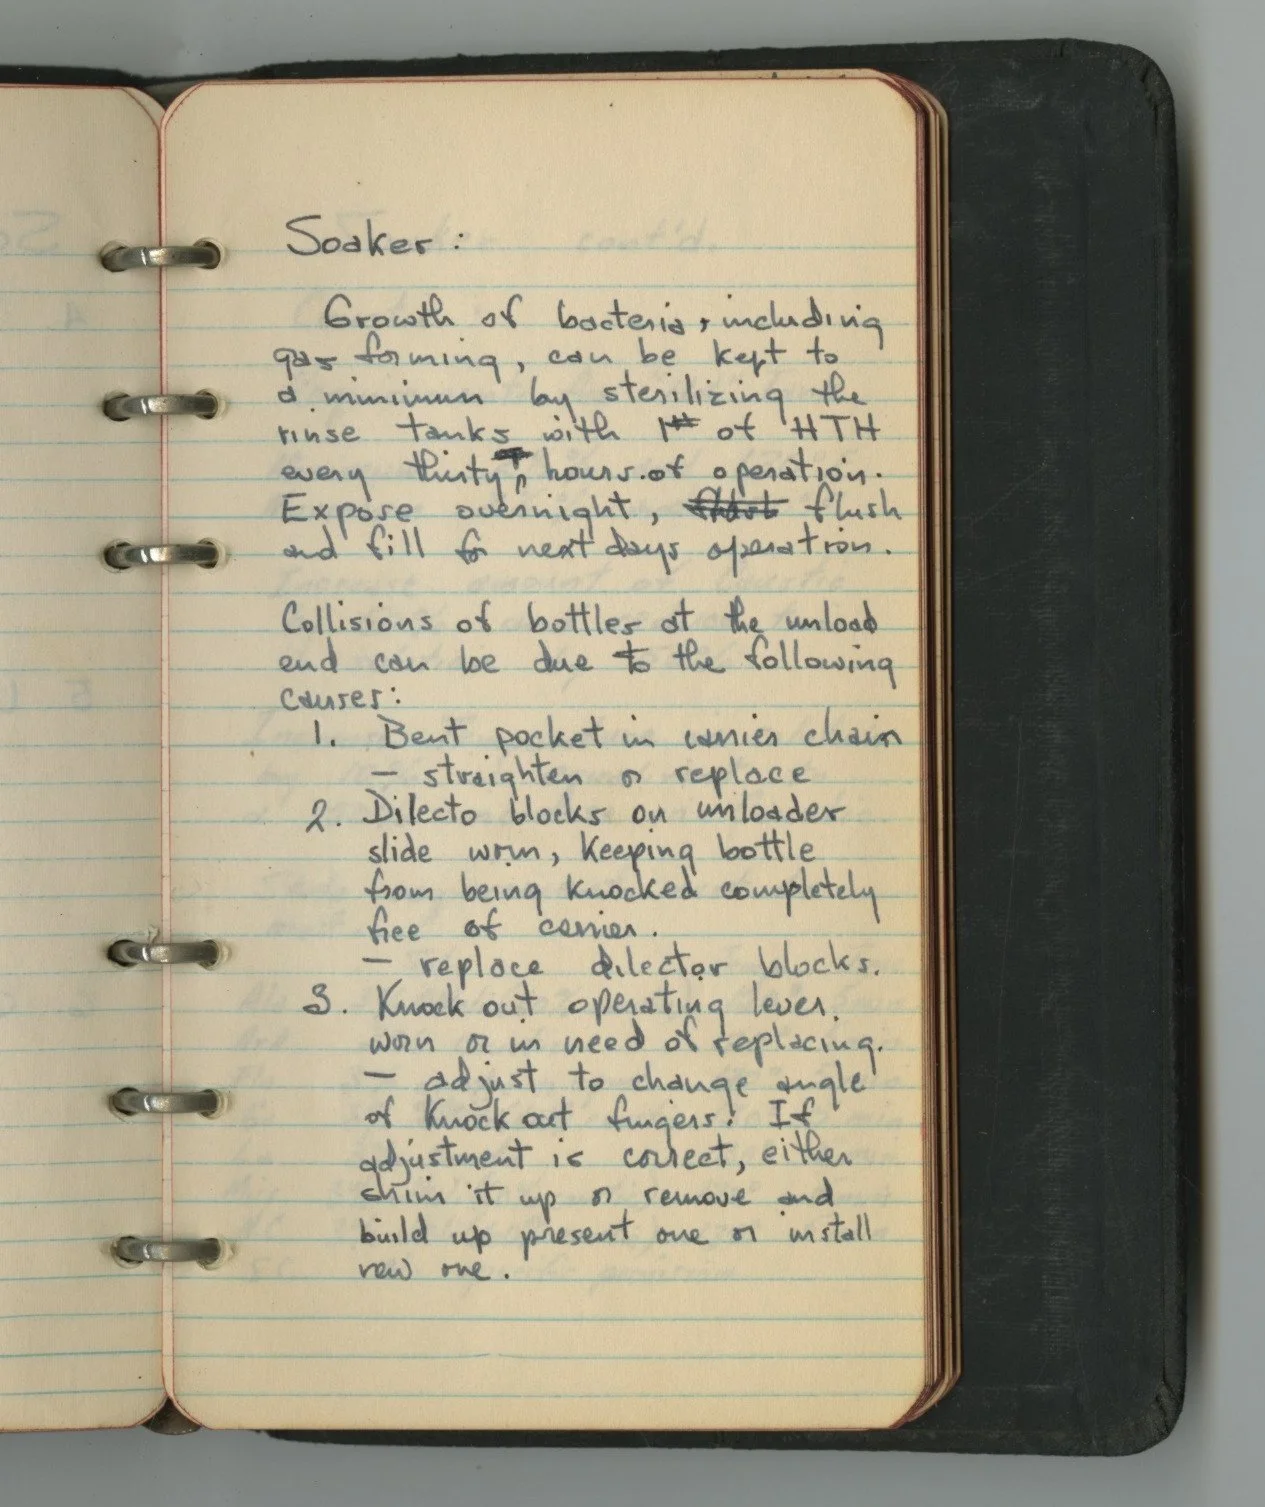 Soaker :
Growth of bacteria, including
gas forming, can be kept to
a minimum by sterilizing the
rinse tanks with 1# of HTH
every thirty hours of operation.
Expose overnight, flush
and fill for next days operation.
Collisions of bottles at the unload
end can be due to the following
causes:
1. Bent pocket in carrier chain
— straighten or replace
2. Dilecto blocks on unloader
slide worn, keeping bottle
from being knocked completely
free of carrier.
— replace dilector blocks.
3. Knock out operating lever
worn or in need of replacing.
— adjust to change angle
of knock out fingers. If
adjustment is correct, either
shim it up or remove and
build up present one or install
new one.